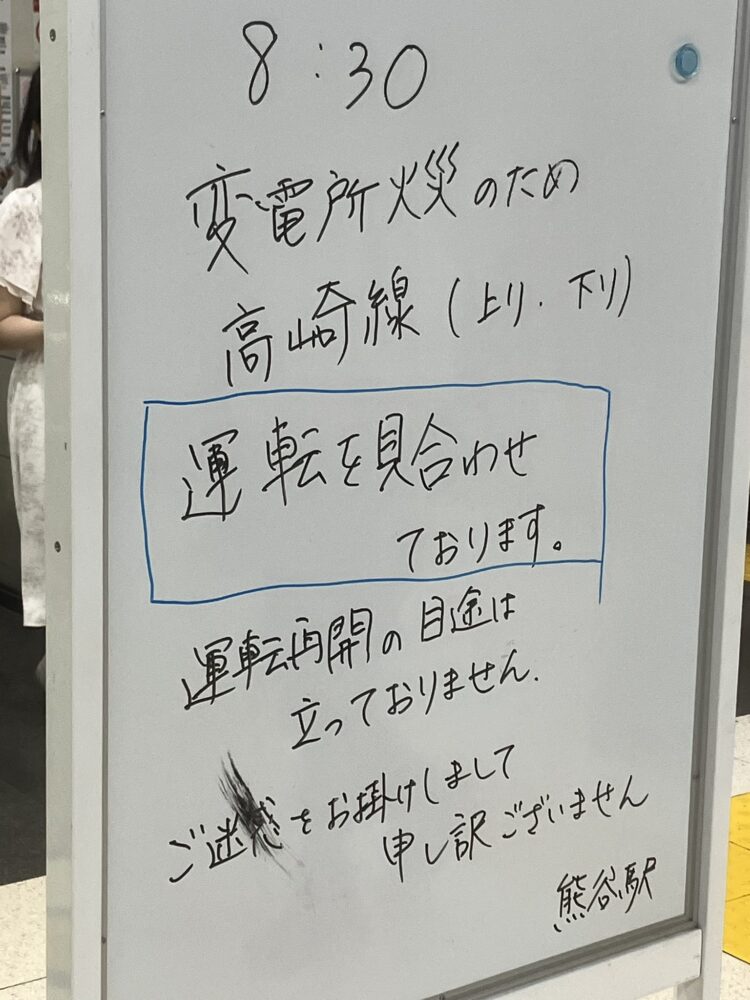 8:30
変電所火災のため
高崎線(上り、下り)
運転を見合わせ
ております。
運転再開の目途は
立っておりません.
ご迷惑をお掛けしまして
申し訳ございません
熊谷駅